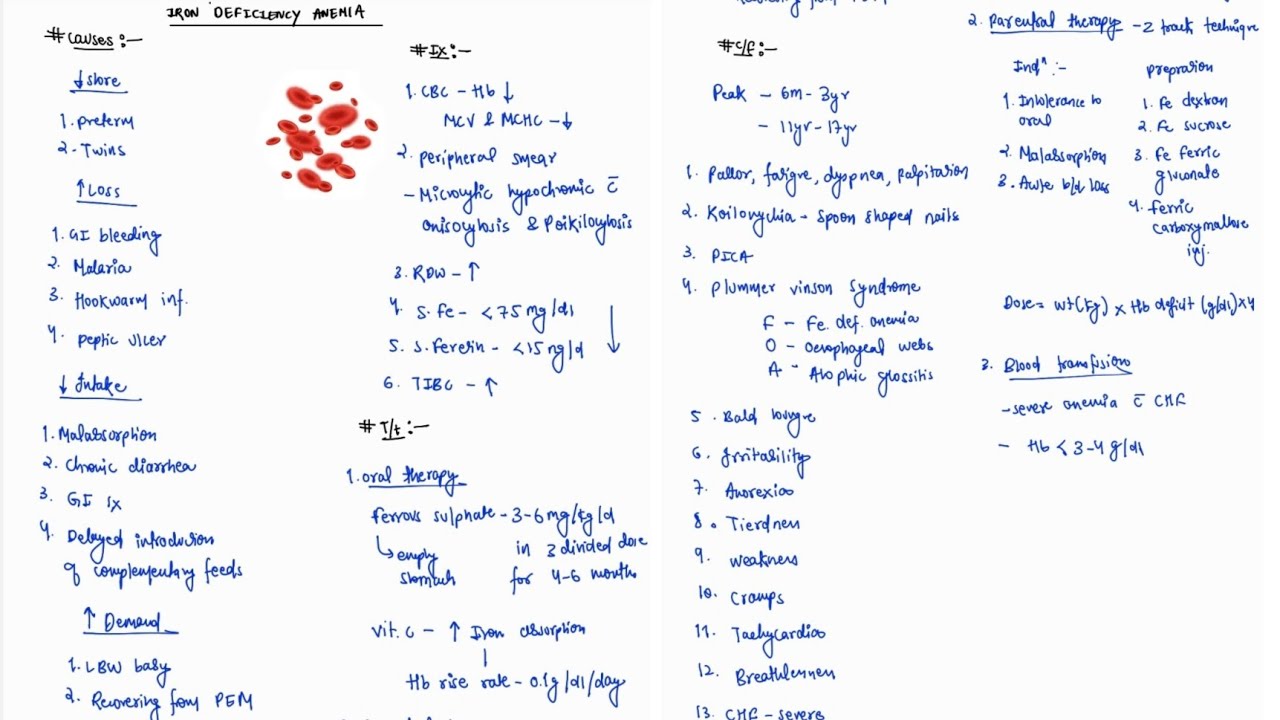 IRON DEFICIENCY ANEMIA
# Causes :-
↓ Store
1. Preterm
2. Twins
↑ Loss
1. GI bleeding
2. Malaria
3. Hookwarm inf.
4. peptic ulcer
↓ Intake
1. Malabsorption
2. Chronic diarrhea
3. GI Sx
4. Delayed introduction
of complementary feeds
↑ Demand
1. LBW baby
2. Recovering from PEM
# IX :-
1. CBC - Hb ↓
MCV & MCHC - ↓
2. peripheral smear
- Microcytic hypochromic c̄
anisocytosis & Poikilocytosis
3. RDW - ↑
4. S. Fe - <75 mg/dl
5. S. Feretin - <15 ng/d
6. TIBC - ↑
# T/t :-
1. oral therapy
ferrous sulphate - 3-6 mg/kg/d
↳ empty stomach
in 3 divided dose
for 4-6 months
vit. C - ↑ Iron absorption
Hb rise rate - 0.1g/dl/day
# C/F :-
Peak - 6m - 3yr
- 11yr - 17yr
1. Pallor, fatigue, dyspnea, palpitation
2. Koilonychia - Spoon shaped nails
3. PICA
4. Plummer vinson Syndrome
F - Fe. def. anemia
O - Oesophageal webs
A - Atrophic glossitis
5. Bald tongue
6. Irritability
7. Anorexia
8. Tierdness
9. weakness
10. Cramps
11. Tachycardia
12. Breathlessness
13. CHF - severe
2. Parentral therapy - Z track technique
Indⁿ :-
1. Intolerance to
oral
2. Malabsorption
3. Acute b/d loss
Prepration
1. Fe dextran
2. Fe sucrose
3. Fe ferric
gluconate
4. ferric
carboxymaltose
inj.
Dose = wt(kg) × Hb deficit (g/dl) × 4
3. Blood transfusion
- severe anemia c̄ CHF
- Hb < 3-4 g/dl